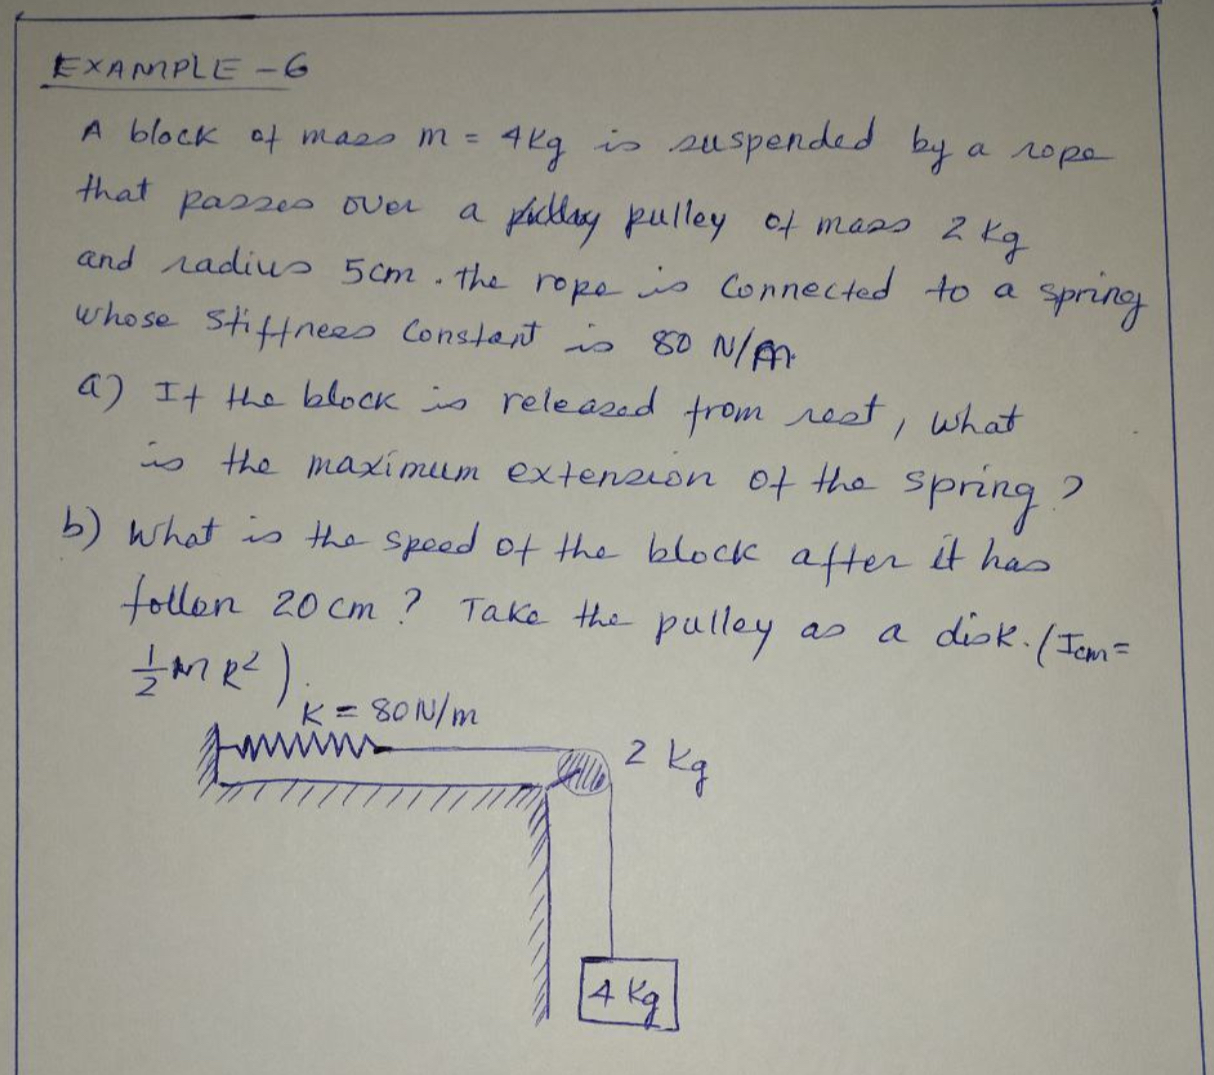 EXAMPLE - 6
A block of mass m = 4kg is suspended by a rope
that passes over a pulley of mass 2 kg
and radius 5cm. the rope is connected to a spring
whose stiffness constant is 80 N/m.
a) If the block is released from rest, what
is the maximum extension of the spring?
b) What is the speed of the block after it has
fallen 20cm? Take the pulley as a disk. (Icm =
1/2 MR²).
K = 80N/m
2 kg
4 kg